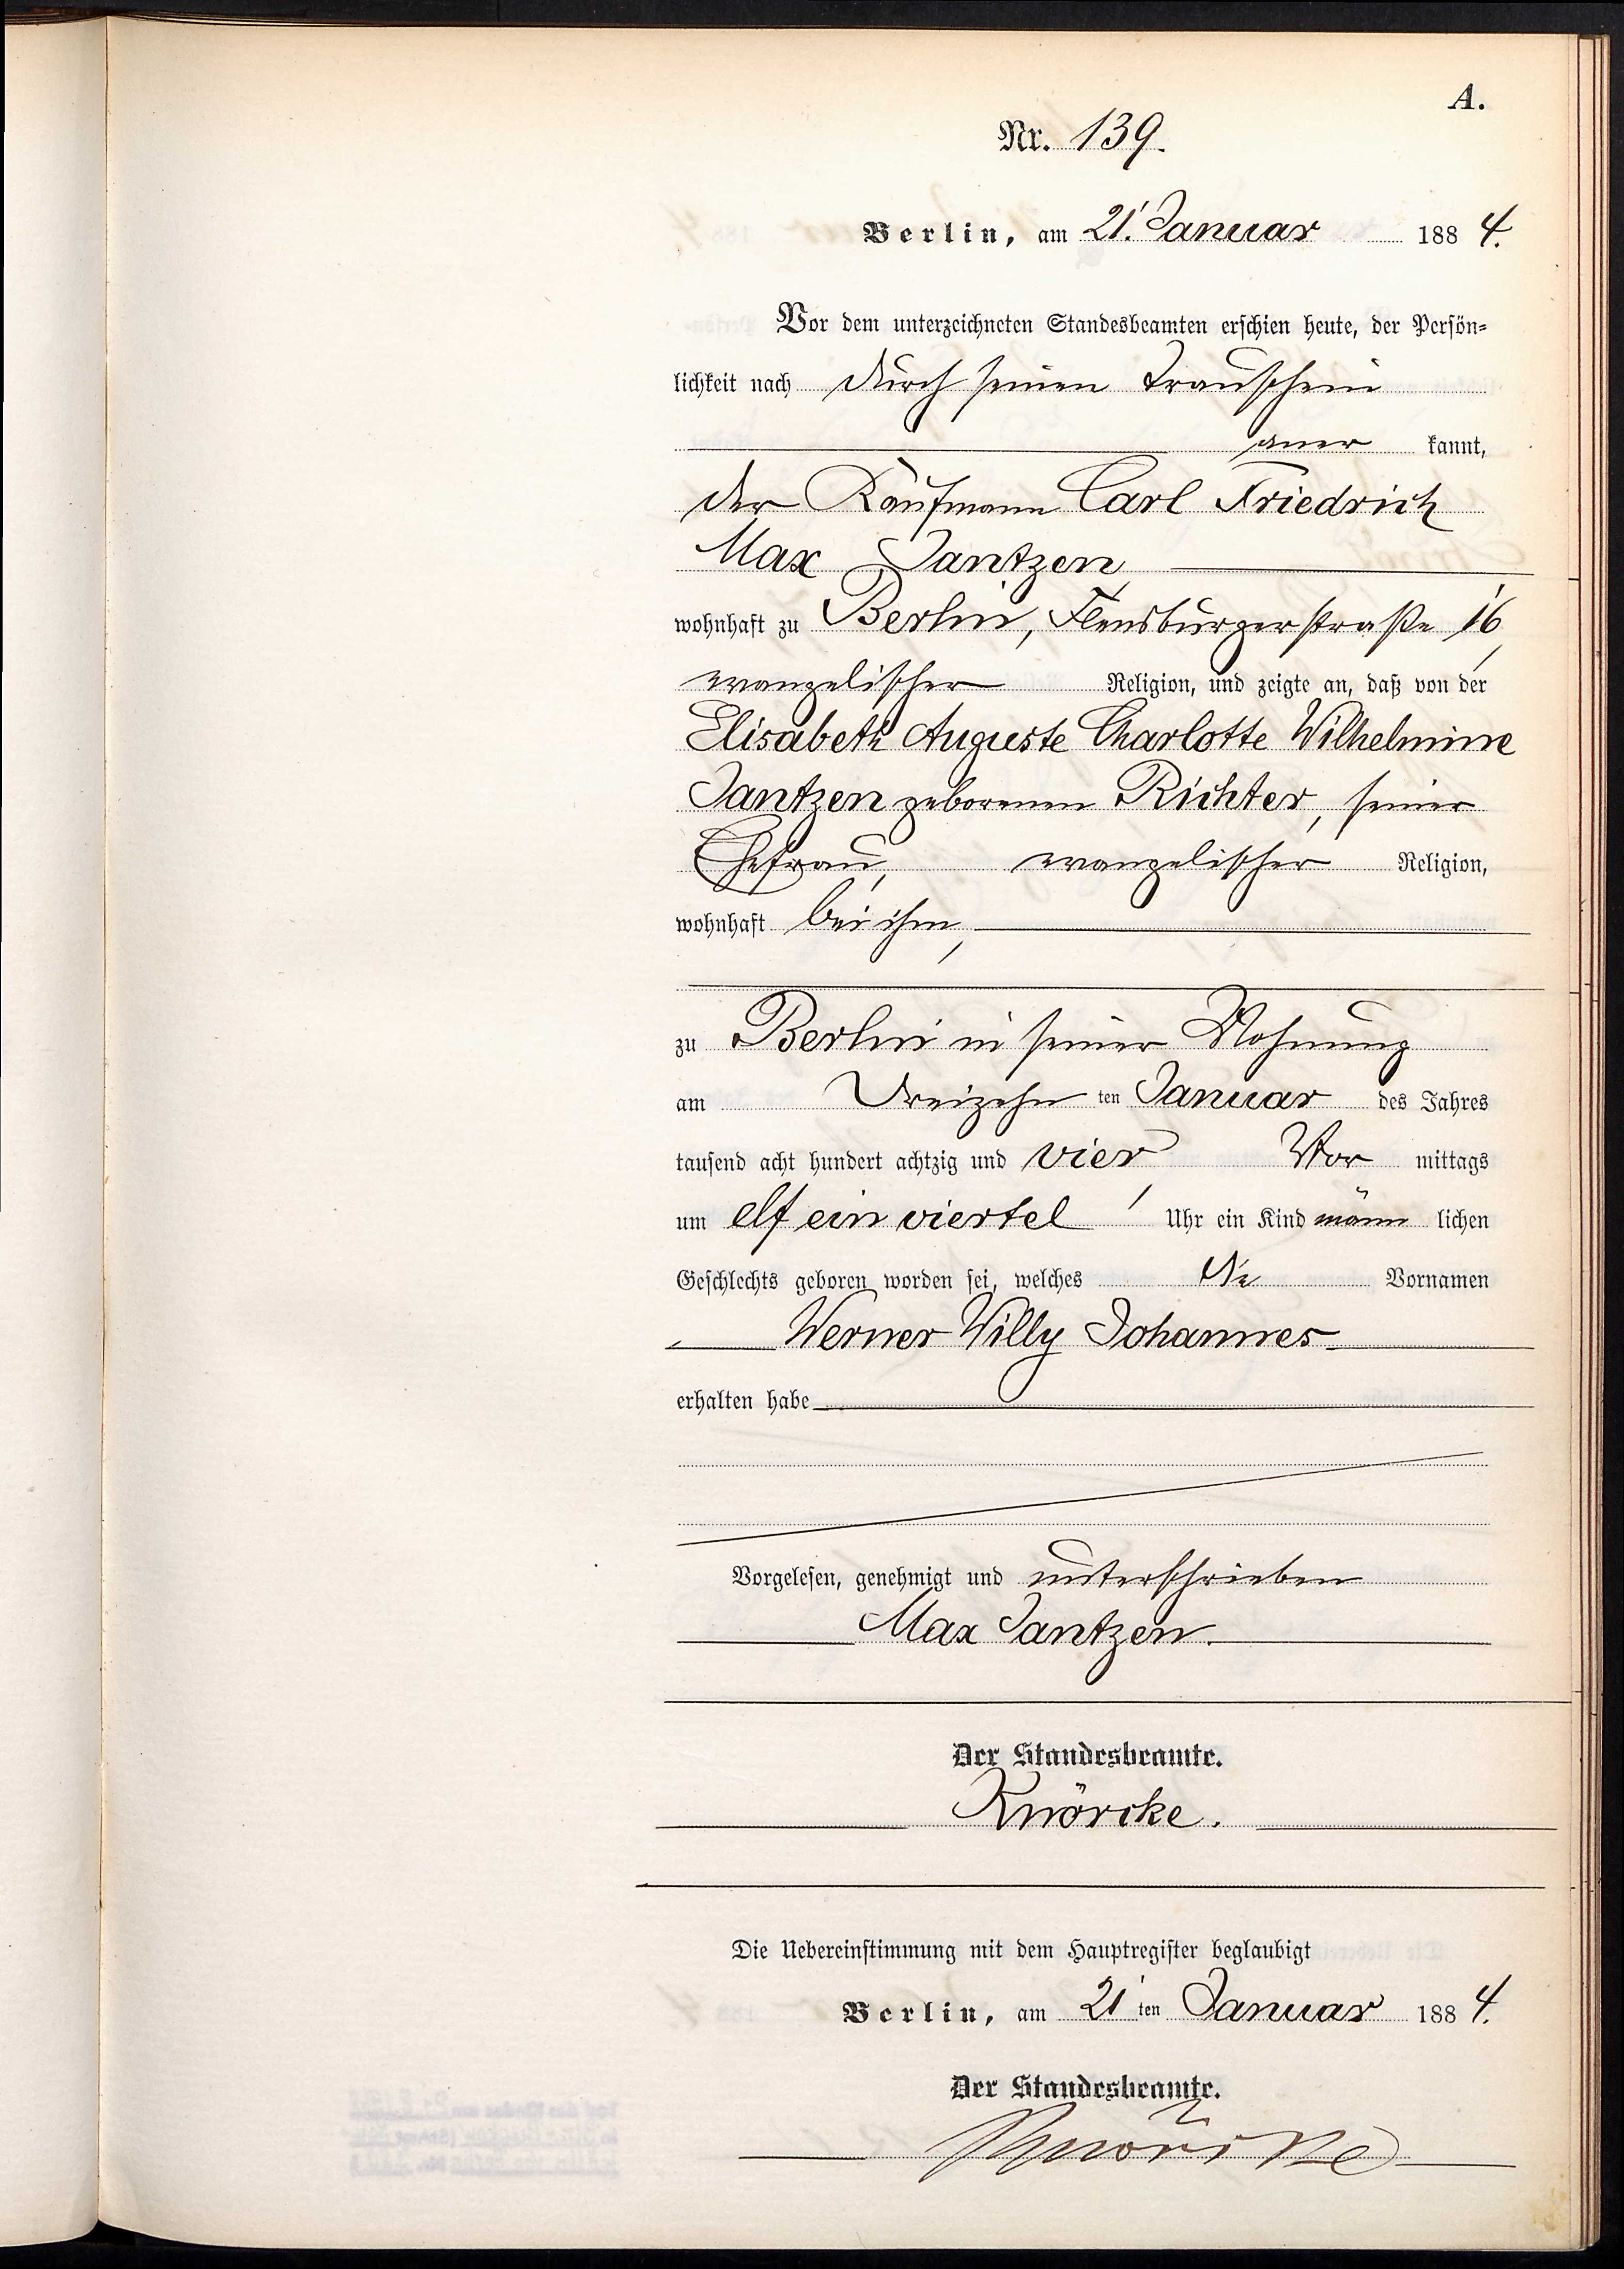 A.
Nr. 139.
Berlin, am 21. Januar 1884.
Vor dem unterzeichneten Standesbeamten erschien heute, der Persön-
lichkeit nach durch seinen Trauschein
aner kannt,
der Kaufmann Carl Friedrich
Max Jantzen
wohnhaft zu Berlin, Flensburgerstraße 16,
evangelischer Religion, und zeigte an, daß von der
Elisabeth Auguste Charlotte Wilhelmine
Jantzen geborenen Richter, seiner
Ehefrau, evangelischer Religion,
wohnhaft bei ihm,
zu Berlin in seiner Wohnung
am Dreizehn ten Januar des Jahres
tausend acht hundert achtzig und vier Vor mittags
um elf ein viertel Uhr ein Kind männ lichen
Geschlechts geboren worden sei, welches die Vornamen
Werner Willy Johannes
erhalten habe
Vorgelesen, genehmigt und unterschrieben
Max Jantzen.
Der Standesbeamte.
Knörcke.
Die Uebereinstimmung mit dem Hauptregister beglaubigt
Berlin, am 21 ten Januar 1884.
Der Standesbeamte.
Knörcke